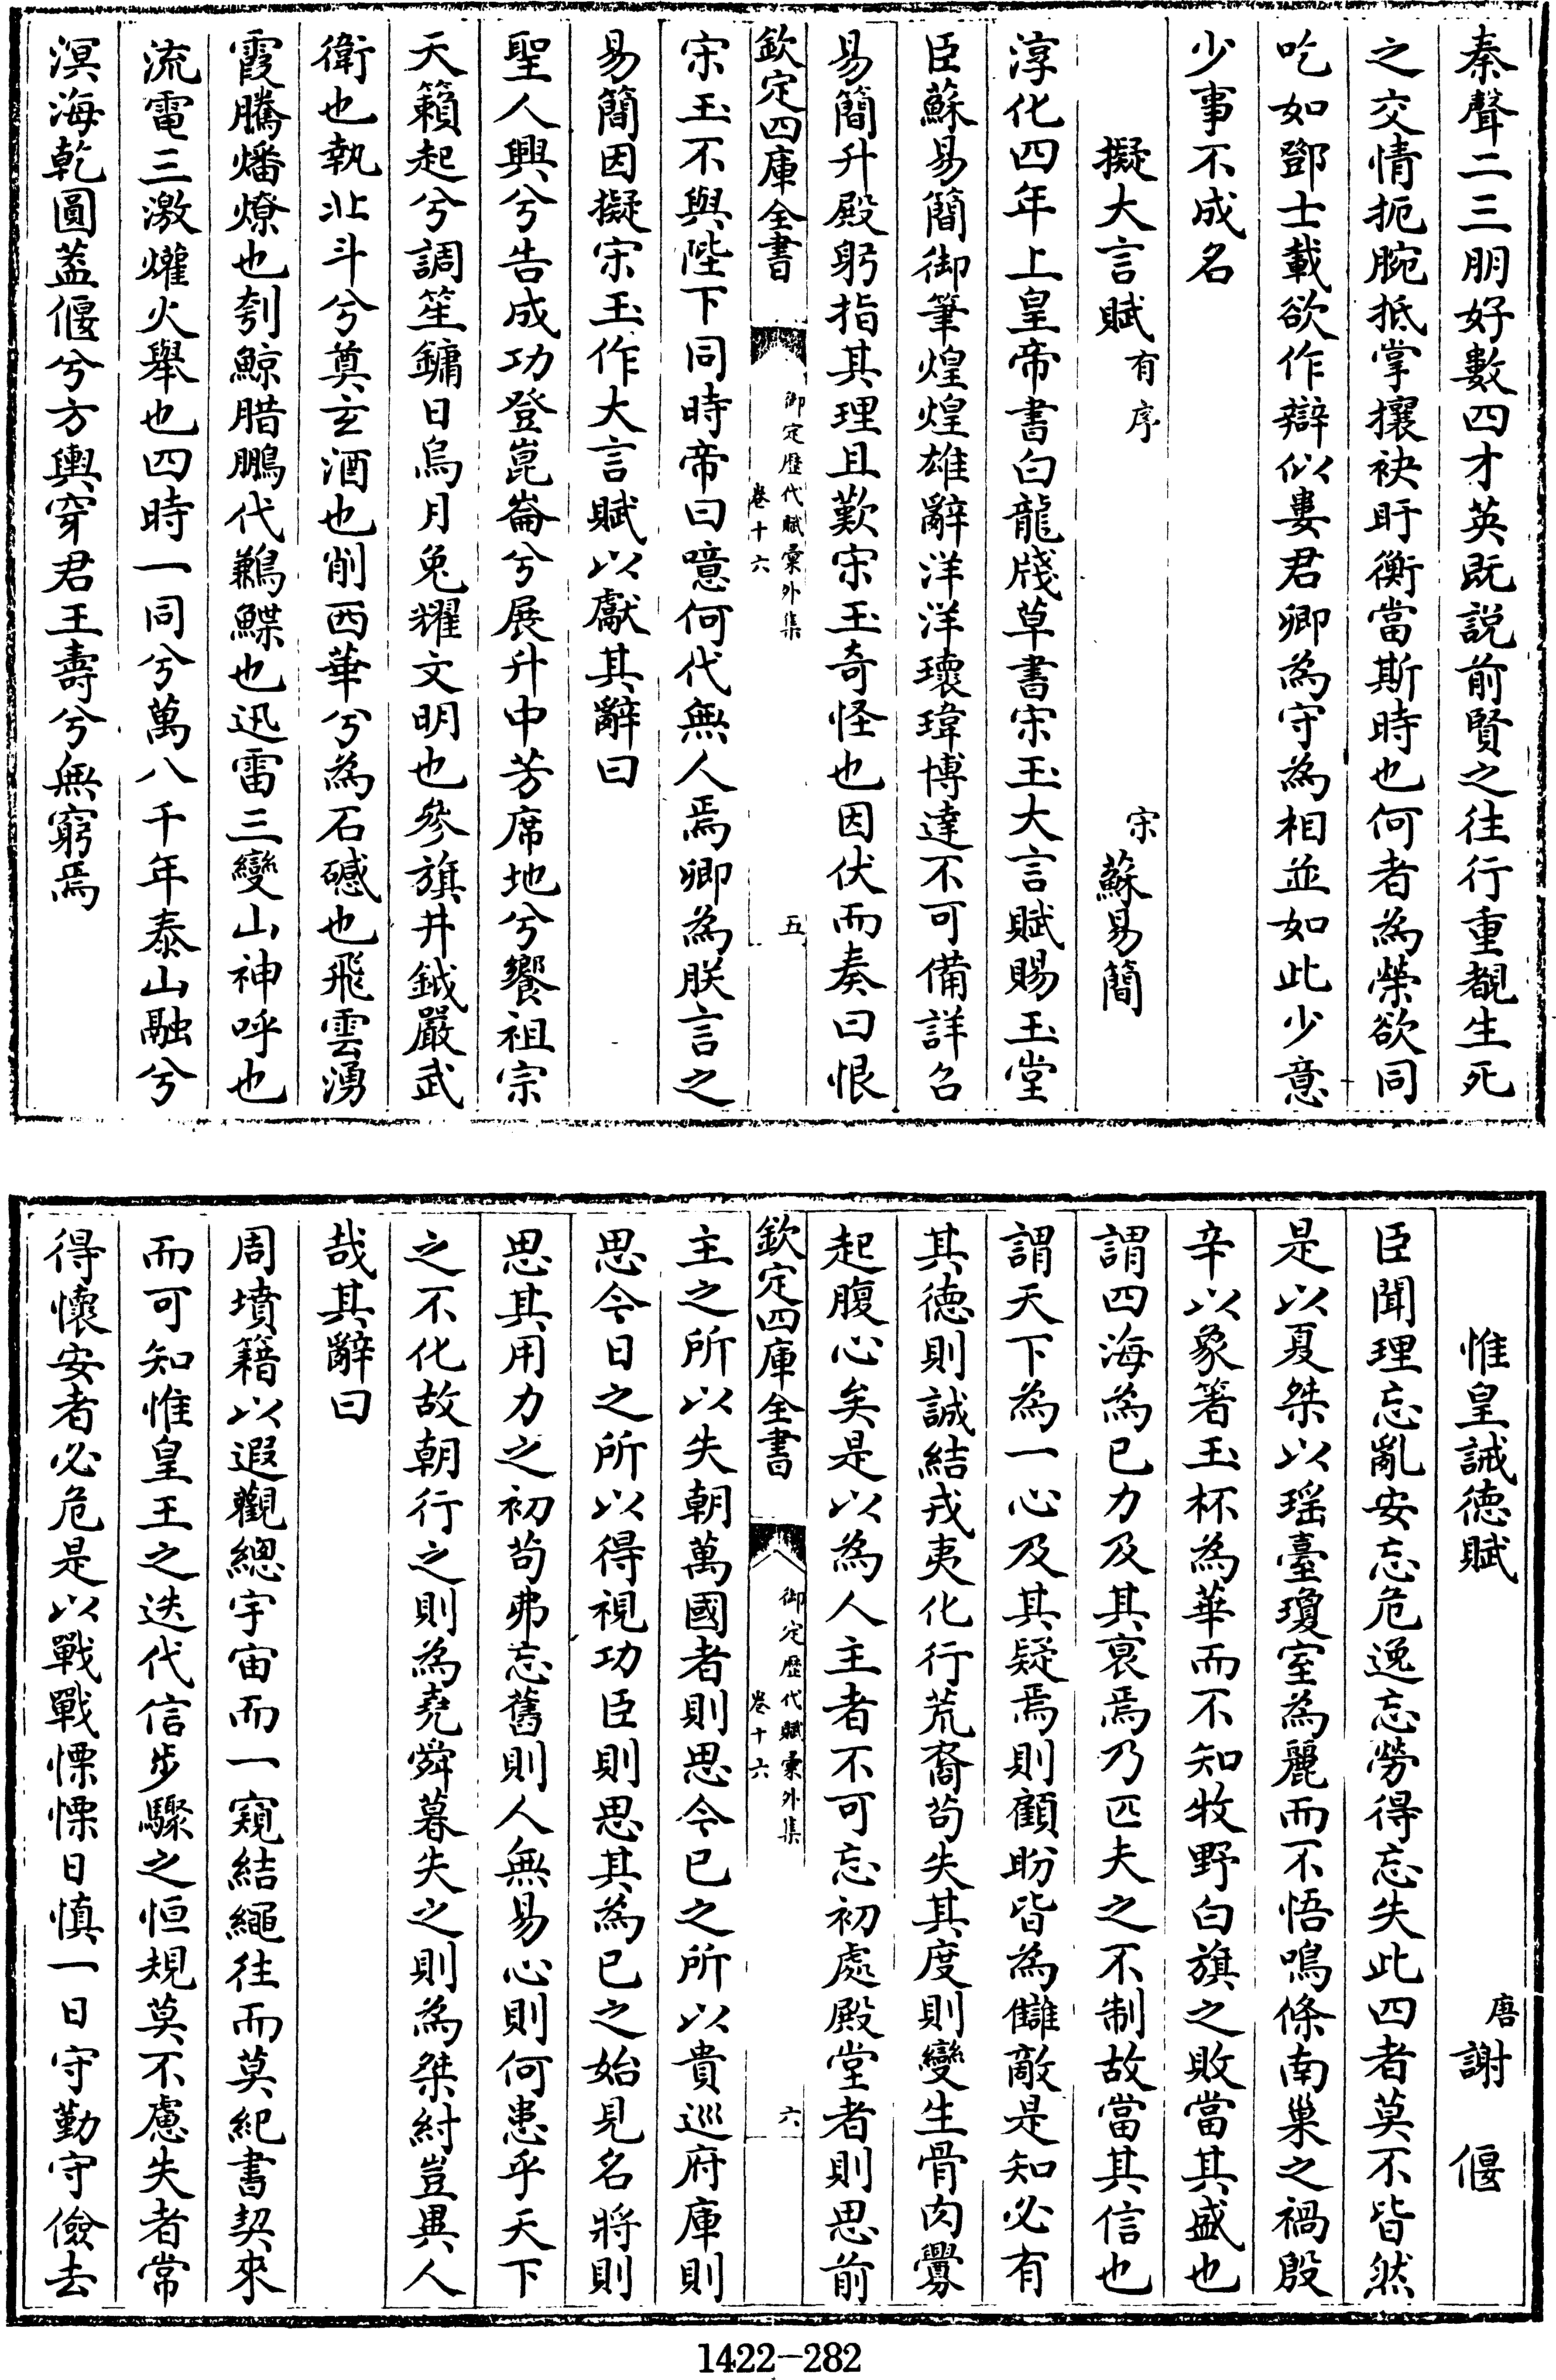 秦聲二三朋好數四才英既説前賢之往行重覩生死
之交情扼腕抵掌攘袂盱衡當斯時也何者為榮欲同
吃如鄧士載欲作辯似婁君卿為守為相並如此少意
少事不成名
擬大言賦有序 宋蘇易簡
淳化四年上皇帝書白龍牋草書宋玉大言賦賜玉堂
臣蘇易簡御筆煌煌雄辭洋洋瓌瑋博達不可備詳召
易簡升殿躬指其理且歎宋玉奇怪也因伏而奏曰恨
欽定四庫全書 御定歷代賦彙外集 卷十六 五
宋玉不與陛下同時帝曰噫何代無人焉卿為朕言之
易簡因擬宋玉作大言賦以獻其辭曰
聖人興兮告成功登崑崙兮展升中芳席地兮饗祖宗
天籟起兮調笙鏞日烏月兔耀文明也參旗井鉞嚴武
衛也執北斗兮奠玄酒也削西華兮為石礈也飛雲湧
霞騰燔燎也刳鯨腊鵬代鶼鰈也迅雷三變山神呼也
流電三激爟火舉也四時一同兮萬八千年泰山融兮
溟海乾圓蓋偃兮方輿穿君王壽兮無窮焉
惟皇誡德賦 唐謝偃
臣聞理忘亂安忘危逸忘勞得忘失此四者莫不皆然
是以夏桀以瑶臺瓊室為麗而不悟鳴條南巢之禍殷
辛以象箸玉杯為華而不知牧野白旗之敗當其盛也
謂四海為已力及其衰焉乃匹夫之不制故當其信也
謂天下為一心及其疑焉則顧盼皆為讎敵是知必有
其徳則誠結戎夷化行荒裔苟失其度則變生骨肉釁
起腹心矣是以為人主者不可忘初處殿堂者則思前
欽定四庫全書 御定歷代賦彙外集 卷十六 六
主之所以失朝萬國者則思今已之所以貴巡府庫則
思今日之所以得視功臣則思其為已之始見名將則
思其用力之初苟弗忘舊則人無易心則何患乎天下
之不化故朝行之則為堯舜暮失之則為桀紂豈異人
哉其辭曰
周墳籍以遐觀總宇宙而一窺結繩往而莫紀書契來
而可知惟皇王之迭代信步驟之恒規莫不慮失者常
得懷安者必危是以戰戰慄慄日慎一日守勤守儉去
1422-282